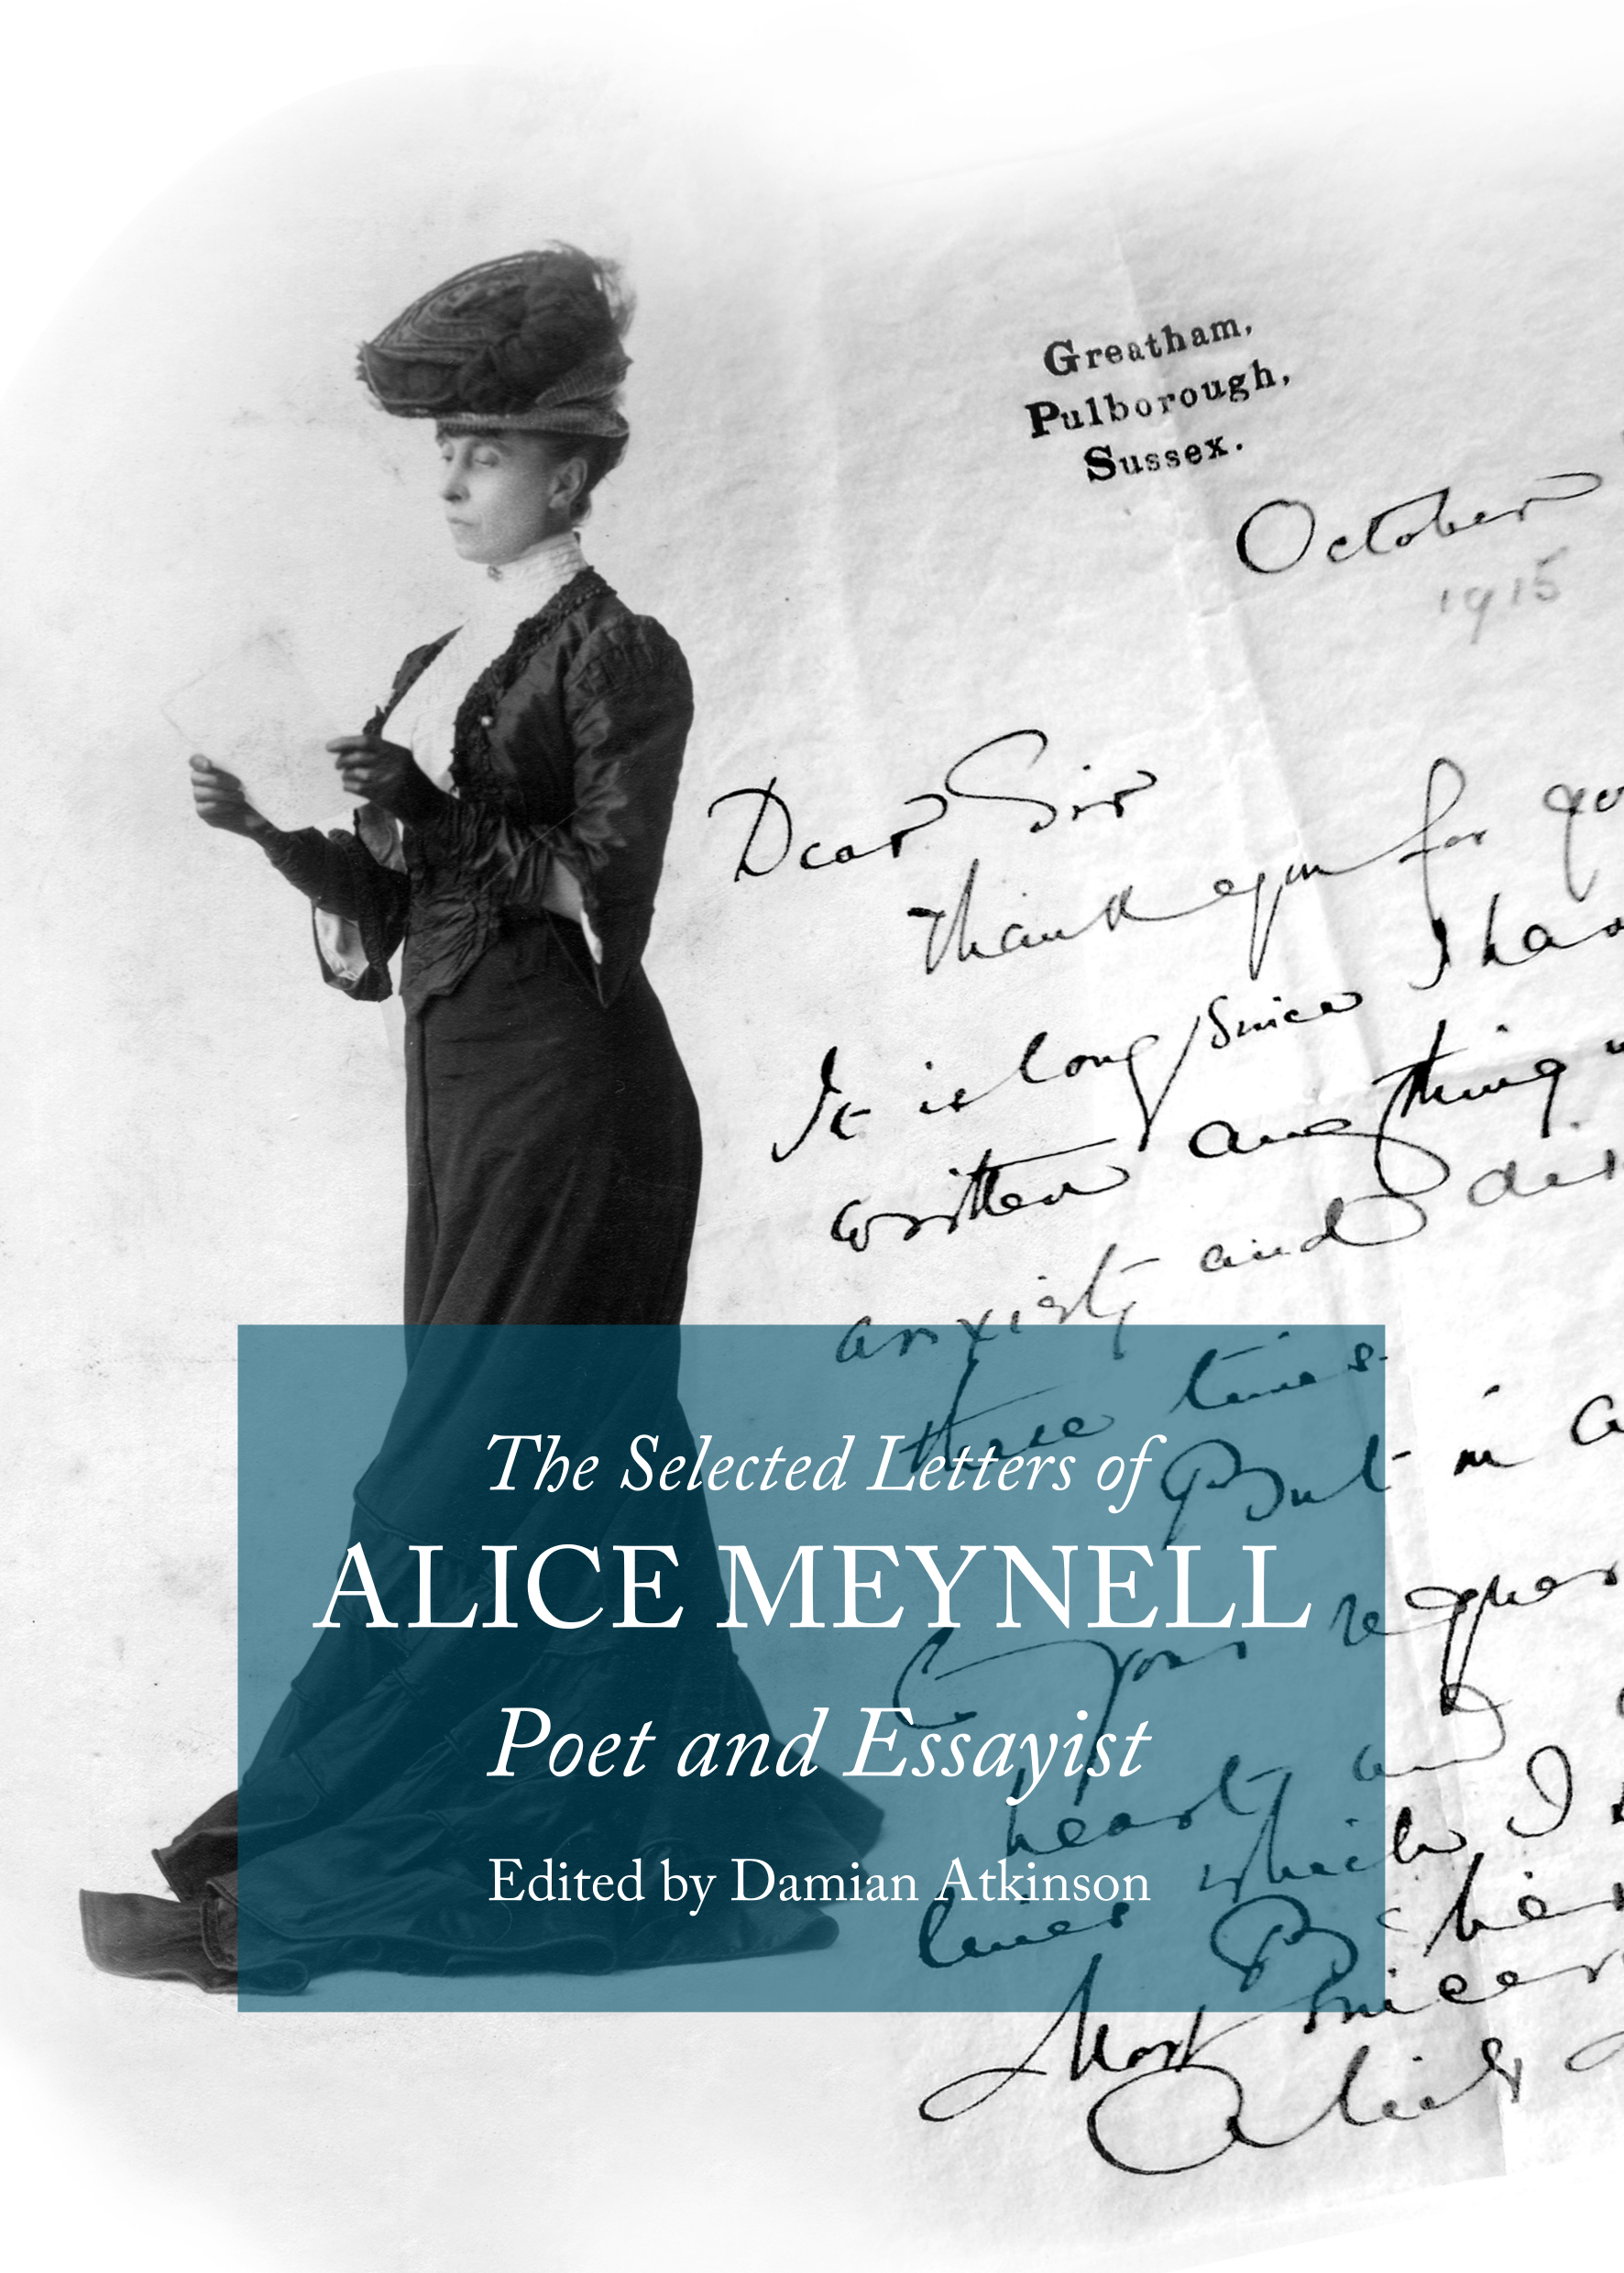 Greatham,
Pulborough,
Sussex.
October
1915
Dear Sir
Thank you for
It is long since I have
written anything
anxiety and
these times.
But in
to your
heart and
lines which I
Most
Alice
The Selected Letters of
ALICE MEYNELL
Poet and Essayist
Edited by Damian Atkinson